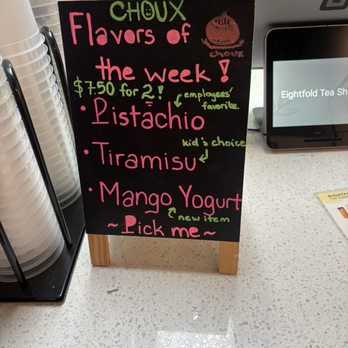 CHOUX
Flavors of
choux
the week!
$7.50 for 2!
employees'
favorite
• Pistachio
kid's choice
• Tiramisu
• Mango Yogurt
new item
~ Pick me ~
Eightfold Tea Sh